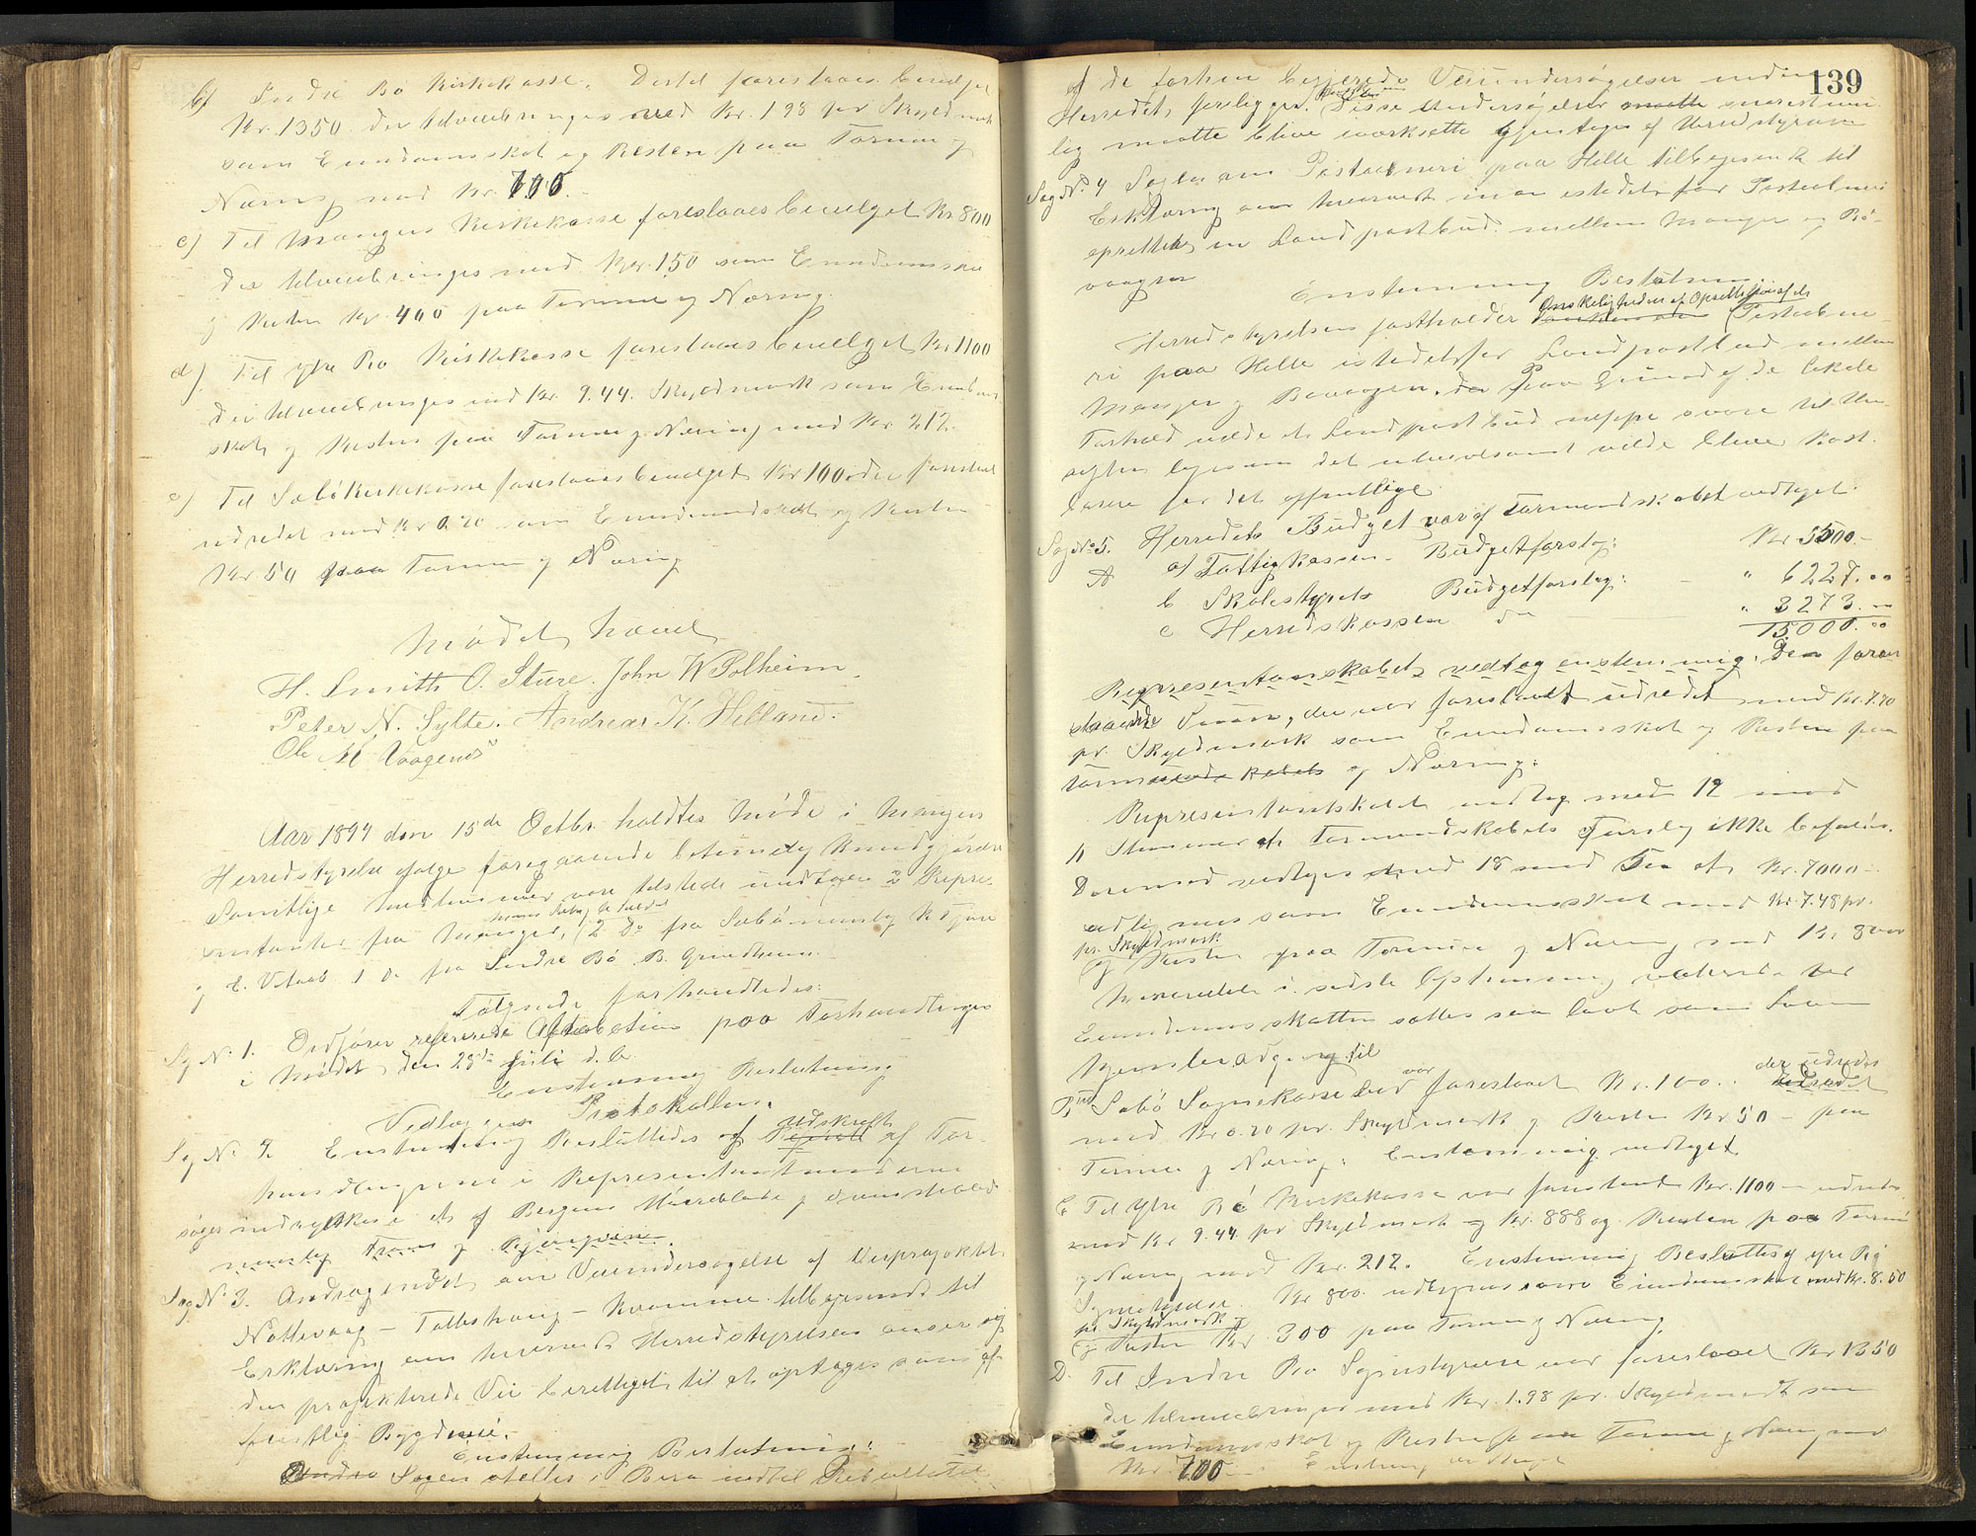 b) Indre Bø Kirkekasse. Dertil foreslaaes bevilget
Kr. 1350 der tilveiebringes med Kr. 1.98 pr Skyldmark
som Eiendomsskat og Resten paa Formue og
Næring med Kr. 700
c) Til Mangers Kirkekasse foreslaaes bevilget Kr 800
der tilveiebringes med Kr. 1,50 som Eiendomsskat
og Resten Kr 400 paa Formue og Næring.
d) Til ytre Bø Kirkekasse foreslaaes bevilget Kr 1100
der tilveiebringes med Kr. 9.44. Skyldmark som Eiendoms
skat og Resten paa Formue og Næring med Kr 212.
e) Til Sæbø Kirkekasse foreslaaes bevilget Kr 100 der foreslaaes
udredet med Kr 0.20 som Eiendomsskat og Resten
Kr 50 paa Formue og Næring
Mødet hævet
H. Smith O. Sture. John W Solheim.
Peter N. Sylte. Andreas K. Helland.
Ole M Vaagenes
Aar 1897 den 15de Octbr holdtes Møde i Mangers
Herredstyrelse ifølge foregaaende betimelig Kundgjørelse
Samtlige Medlemmer vare tilstede undtagen 2 Repre-
sentanter fra Manger, 2 Do fra Sæbø nemlig
og 1 Do fra Indre Bø B. Grindheim.
Følgende forhandledes:
Sag No 1. Ordfører refererede paa Forhandlinger
i Mødet den 28de Juli d. A.
Enstemmig Beslutning
Vedlægges Protokollen.
Sag No 2 Enstemmig besluttedes at Udskrift af For-
handlingerne i Representantmøderne
søges indrykket i et af Bergens Venstreblade
nemlig
Sag No 3. Andragendet om Veiundersøgelse af Veiprojektet
Nottevaag – – Kvamme tilbagesendt til
Erklæring om hvorvidt Herredstyrelsen anser
den projekterede Vei berettiget til at optages som of-
fentlig Bygdevei.
Enstemmig Beslutning:
Sagen stilles i Bero indtil Resultatet
139
af de forhen begjerede Veiundersøgelser inden
Herredet foreligger. Disse Undersøgelser snarest mu-
lig maatte blive iværksatte gjentages af Herredstyrelsen
Sag No 4 Sagen om Postaabneri paa Helle tilbagesendt til
Erklæring om hvorvidt man istedetfor Postaabneri
oprettede en Landpostbud mellem Manger og Bø-
vaagen
Enstemmig Beslutning.
Ønskeligheden af Oprettelsen af et
Herredstyrelsen fastholder Postaabne-
ri paa Helle istedetfor Landpostbud mellem
Manger og Bøvaagen, da paa Grund af de lokale
Forhold vilde et Landpostbud neppe svare til Hen-
sigten ligesom det vilde blive kost-
barere for det offentlige
Sag No 5. Herredets Budget var af Formandskabet vedtaget.
A a) Fattigkassen - Budgetforslag: Kr 5500.-
b Skolestyrets Budgetforslag: - " 6227.00
c Herredskassen do " 3273.00
15000.00
Representantskabet vedtog enstemmig. Den foran
staaende Sum, der var foreslaaet udredet med Kr. 7.70
pr. Skyldmark som Eiendomsskat og Resten paa
Formue og Næring:
Representantskabet vedtog med 12 mod
11 Stemmer at Formandskabets Forslag ikke befales.
Derimod vedtages med 18 mod at Kr. 7000 -
udlignes som Eiendomsskat med Kr. 7.48 pr.
pr. Skyldmark
og Resten paa Formue og Næring med Kr 8000
Mindretallet i sidste Afstemning voterede for
Eiendomsskatten sættes saa lavt som Loven
hjemler Adgang til
Sæbø Sognekasse var foreslaaet Kr. 100. der udredes
med Kr 0.20 pr. Skyldmark og Resten Kr 50 - paa
Formue og Næring. Enstemmig vedtaget.
C Til Ytre Bø Kirkekasse var foreslaaet Kr. 1100 - udredes
med Kr 9.44 pr Skyldmark Kr. 888 og Resten paa Formue
og Næring med Kr. 212. Enstemmig Besluttes Ytre Bø
Sognestyrelse. Kr 800. udlignes som Eiendomsskat med Kr. 8.50
pr. Skyldmark
og Resten Kr 300 paa Formue og Næring
D. Til Indre Bø Sognestyrelse var foreslaaet Kr 1350
der tilveiebringes med Kr. 1.98 pr. Skyldmark som
Eiendomsskat og Resten paa Formue og Næring med
Kr. 700 Enstemmig vedtaget